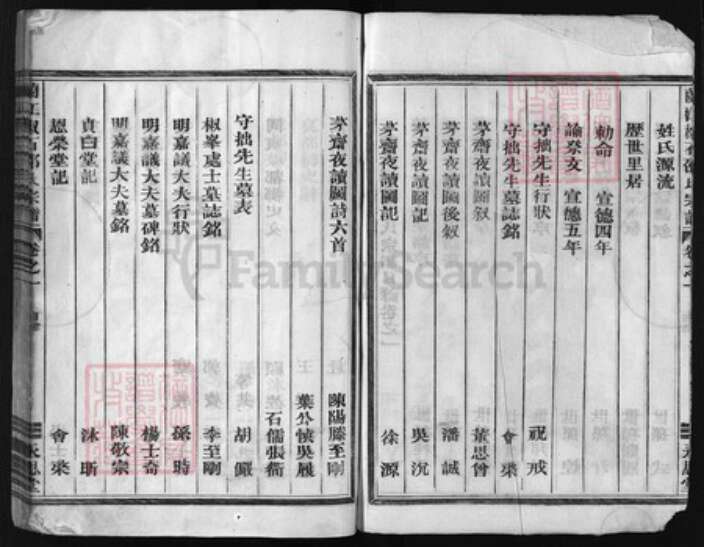 姓氏源流
歷世里居
勅命 宣德四年
諭祭文 宣德五年
守拙先生行狀 祝戒
守拙先生墓誌銘 會棨
茅齋夜讀圖叙 董思曾
茅齋夜讀圖後叙 潘誠
茅齋夜讀圖記 吳沉
茅齋夜讀圖記 徐源
茅齋夜讀圖詩六首 陳陽滕至剛
葉公慎吳履
石儒張裔
守拙先生墓表 胡儼
椒峯處士墓誌銘 李至剛
明嘉議大夫行狀 孫時
明嘉議大夫墓碑銘 楊士奇
明嘉議大夫墓銘 陳敬宗
貞白堂記 沐昕
恩榮堂記 會棨
卷之一
永思堂
FamilySearch